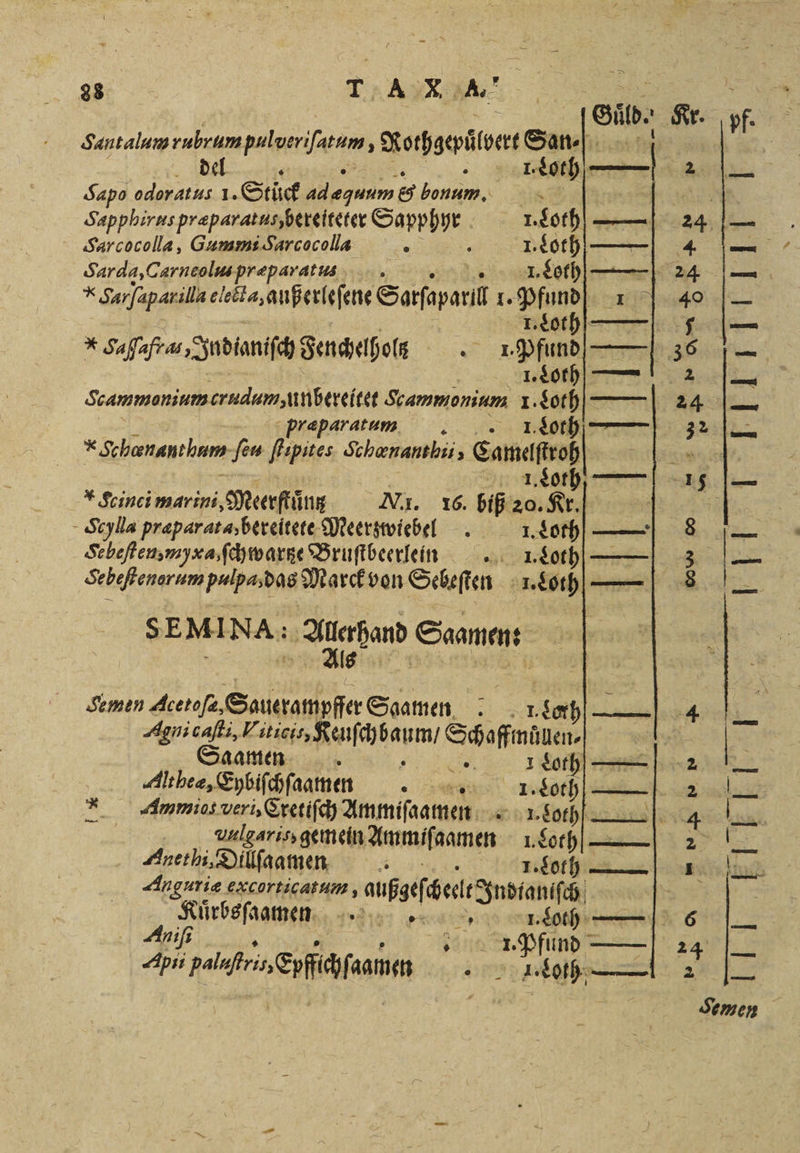 88 T A X A.
Gůld. Kr. pf.
Santalum rubrum pulverisatum, Roth gepůlvert San-
del . . . . 1. Loth —— 2 —
Sapo odoratus 1. Stuck ad æquum & bonum.
Sapphirus præparatus, bereiteter Sapphyr 1. Loth —— 24 —
Sarcocolla, Gummi Sarcocolla . . 1. Loth —— 4 —
Sarda, Carneolus præparatus . . . 1. Loth —— 24 —
* Sarsaparilla electa, außerlesene Sarsaparill 1. Pfund 1 40 —
1. Loth —— 5 —
* Sassafras, Indianisch Fenchelholtz . 1. Pfund —— 36 —
1. Loth —— 2 —
Scammonium crudum, unbereitet Scammonium 1. Loth —— 24 —
præparatum . . 1. Loth —— 32 —
* Schœnanthum seu stipites Schœnanthii, Camelstroh
1. Loth —— 15 —
* Scinci marini, Meerstůntz N. 1. 16. biß 20. Kr.
Scylla præparata, bereitete Meerzwiebel . 1. Loth —— 8 —
Sebesten, myxa, schwartze Brustbeerlein . 1. Loth —— 3 —
Sebestenorum pulpa, das Marck von Sebesten 1. Loth —— 8 —
SEMINA: Allerhand Saamen:
Als
Semen Acetosæ, Sauerampffer Saamen . 1. Loth —— 4 —
Agni casti, Viticis, Keuschbaum/ Schaffmůllen-
Saamen . . . 1 Loth —— 2 —
Altheæ, Eybischsaamen . . 1. Loth —— 2 —
* Ammios veri, Cretisch Ammisaamen . 1. Loth —— 4 —
vulgaris, gemein Ammisaamen 1. Loth —— 2 —
Anethi, Dillsaamen . . 1. Loth —— 1 —
Anguriæ excorticatum, außgescheelt Indianisch
Kůrbssaamen . . . 1. Loth —— 6 —
Anisi . . . . 1. Pfund —— 24 —
Apii palustris, Epffichsaamen . . 1. Loth —— 2 —
Semen